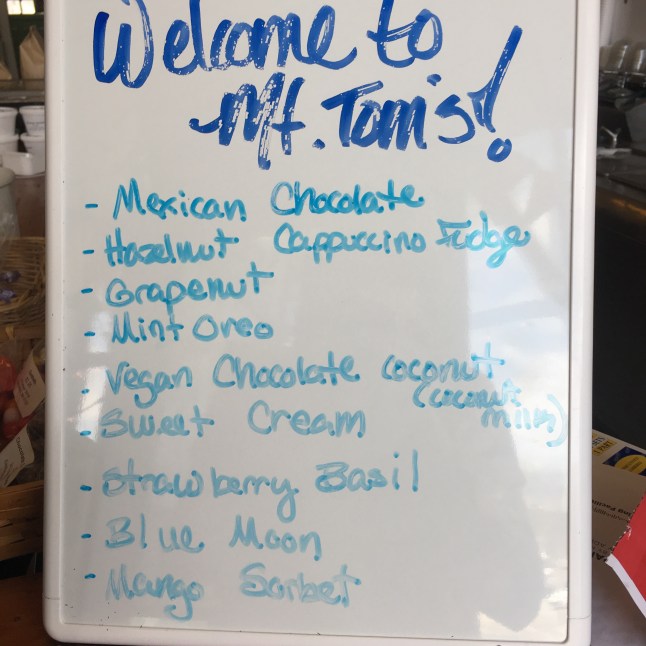 Welcome to
Mt. Tom's!
- Mexican Chocolate
- Hazelnut Cappuccino Fudge
- Grapenut
- Mint Oreo
- Vegan Chocolate coconut
(coconut
milk)
- Sweet Cream
- Strawberry Basil
- Blue Moon
- Mango Sorbet